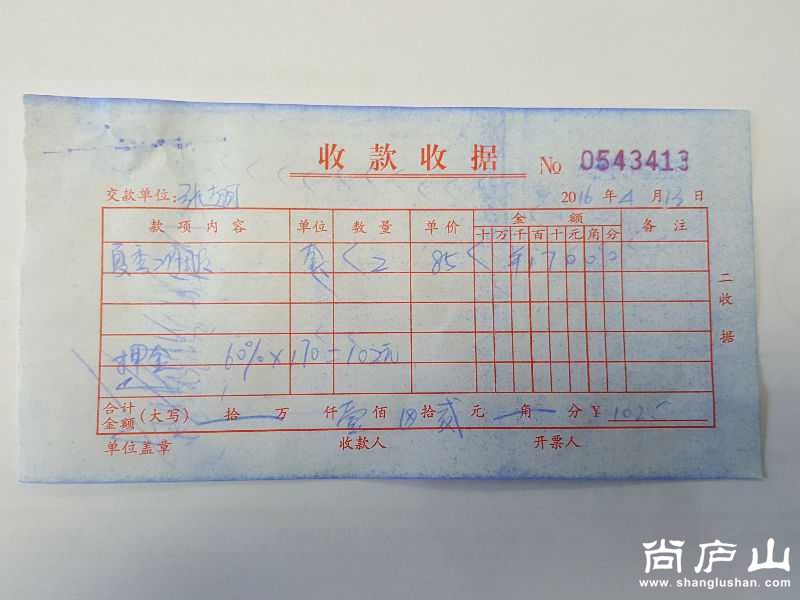 收款收据 No 0543413
交款单位: 2016年4月13日
款项内容 单位 数量 单价 金额 备注
十万千百十元角分
夏季工作服 套 2 85 ¥17000
二收据
押金 60%×170=102元
合计金额(大写) 拾 万 仟 壹佰 拾贰元 角 分 ¥ 102
单位盖章 收款人 开票人
尚庐山
www.shanglushan.com